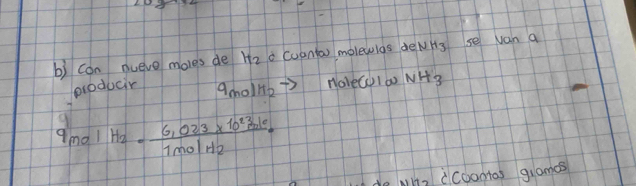 b) con nueve moles de H2 ¿ cuantas moleculas de NH3 se van a
producir
9 mol H2 → Moleculas NH3
9 mol H2 - 6,023 x 10²³
1 mol H2
de NH3 ¿ Cuantos gramos